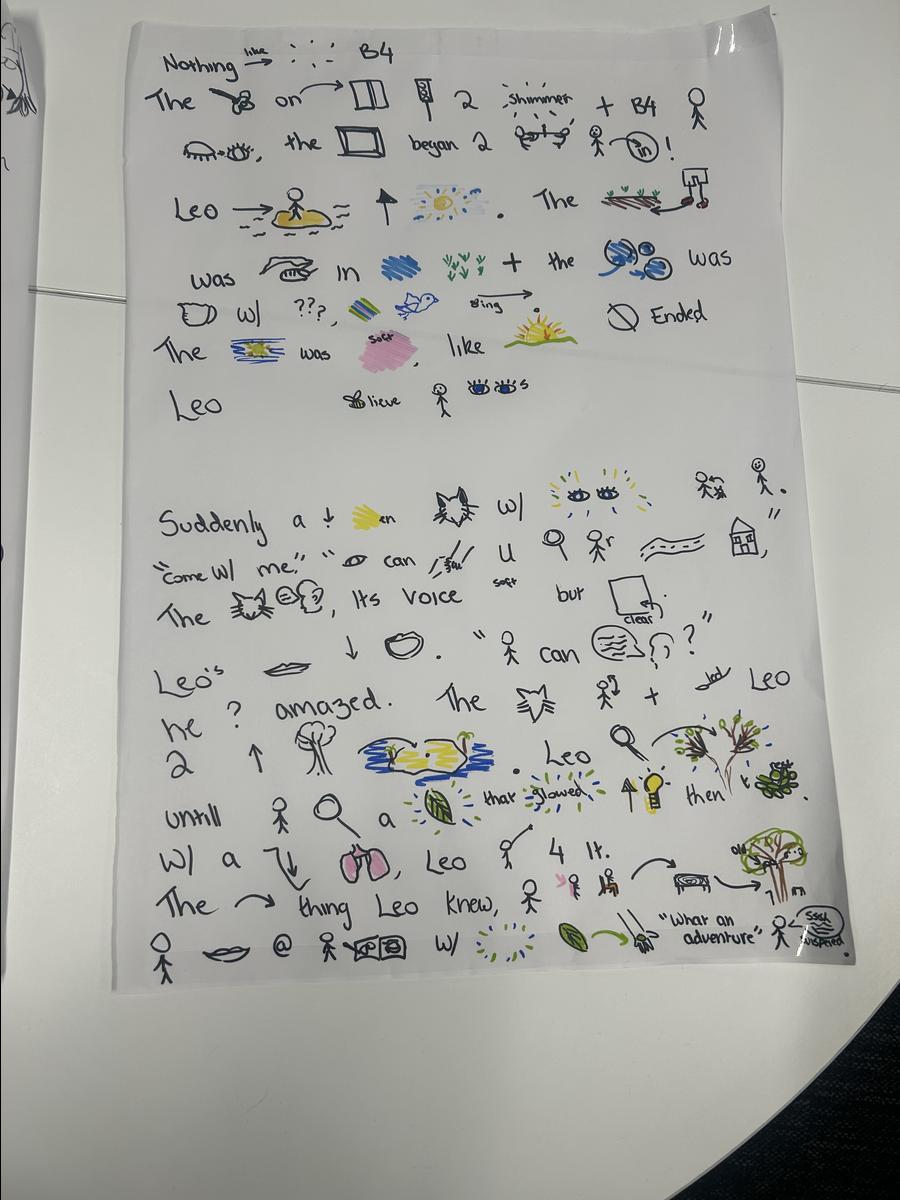 Nothing like B4
The on 2 shimmer + B4
, the began 2 in !
Leo . The
was in + the was
w/ ???, sing Ended
The was soft, like
Leo lieve s
Suddenly a en w/ .
"come w/ me." " can u r ,"
The , Its voice soft but clear.
Leo's . " can ?"
he ? amazed. The + led Leo
2 . Leo
untill a that glowed then t rest.
w/ a , Leo 4 It.
The thing Leo knew, old m
@ w/ "What an adventure" wispered.